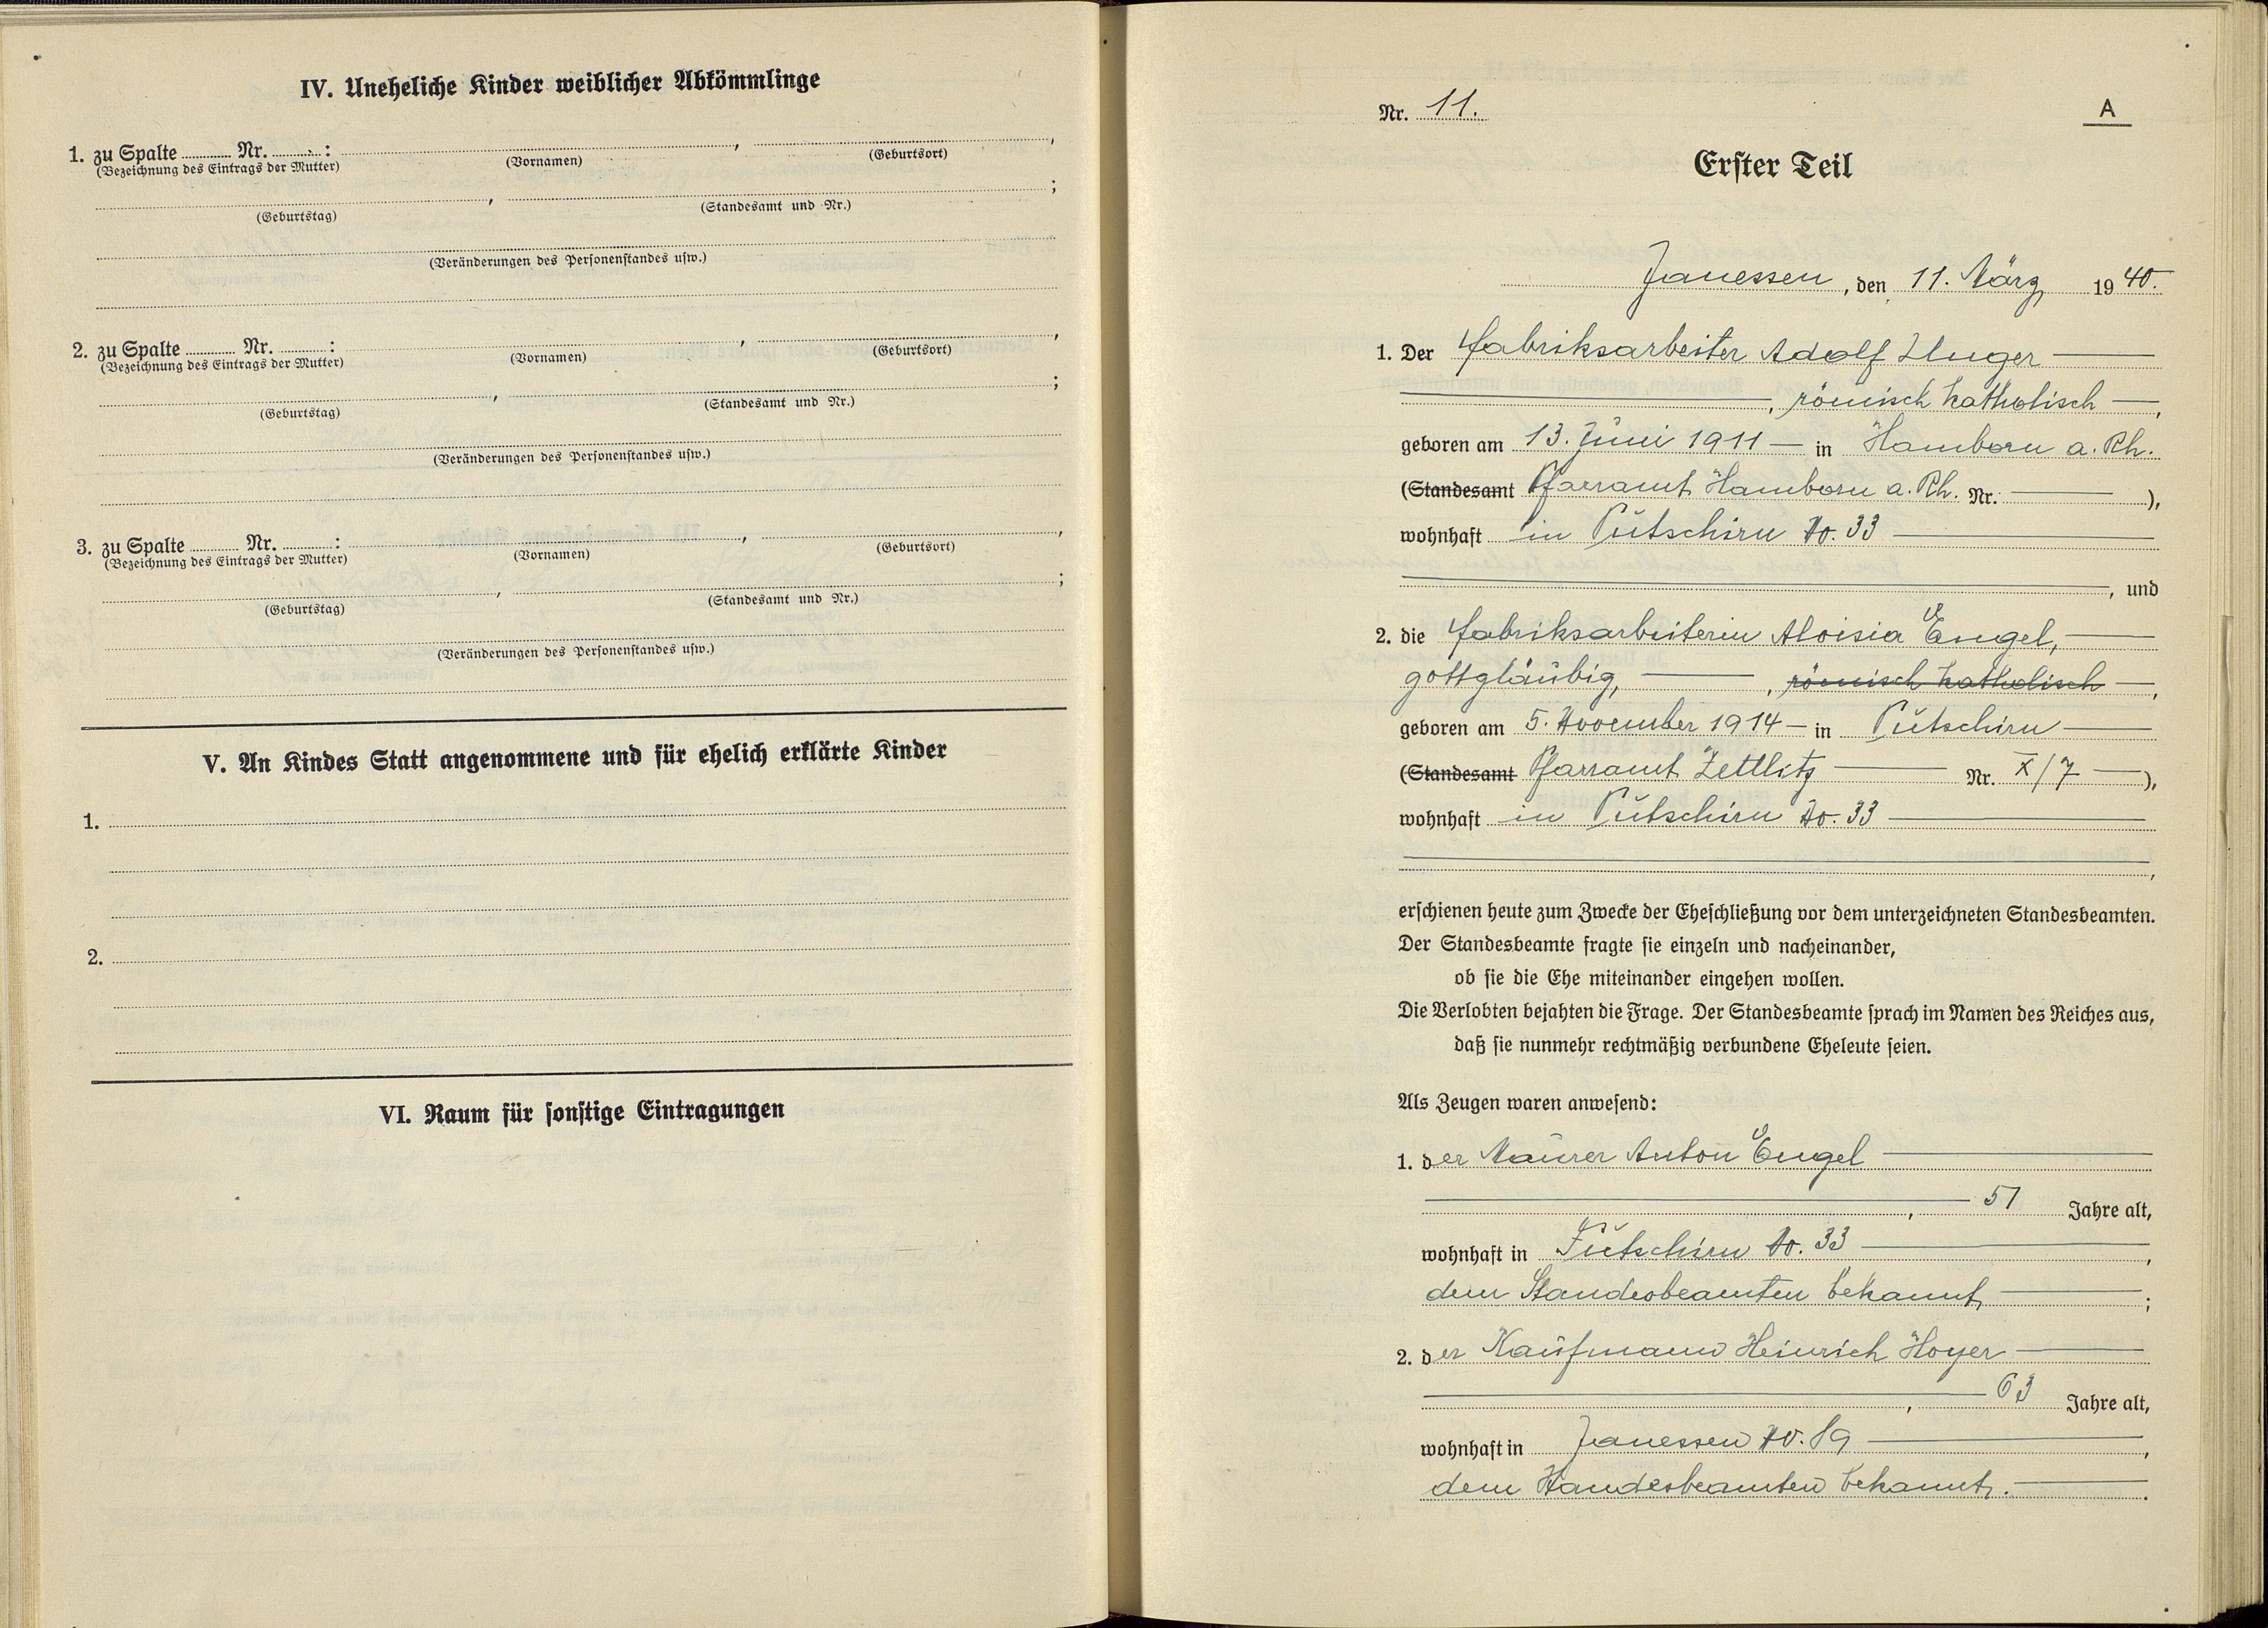 IV. Uneheliche Kinder weiblicher Abkömmlinge
1. zu Spalte ........ Nr. ........ : ........ , ........ ,
(Bezeichnung des Eintrags der Mutter) (Vornamen) (Geburtsort)
........ , ........ ;
(Geburtstag) (Standesamt und Nr.)
(Veränderungen des Personenstandes usw.)
2. zu Spalte ........ Nr. ........ : ........ , ........ ,
(Bezeichnung des Eintrags der Mutter) (Vornamen) (Geburtsort)
........ , ........ ;
(Geburtstag) (Standesamt und Nr.)
(Veränderungen des Personenstandes usw.)
3. zu Spalte ........ Nr. ........ : ........ , ........ ,
(Bezeichnung des Eintrags der Mutter) (Vornamen) (Geburtsort)
........ , ........ ;
(Geburtstag) (Standesamt und Nr.)
(Veränderungen des Personenstandes usw.)
V. An Kindes Statt angenommene und für ehelich erklärte Kinder
1.
2.
VI. Raum für sonstige Eintragungen
Nr. 11.
A
Erster Teil
Janessen, den 11. März 1940.
1. Der Fabriksarbeiter Adolf Unger —
—, römisch katholisch —,
geboren am 13. Juni 1911 — in Hamborn a. Rh.
(Standesamt Pfarramt Hamborn a. Rh. Nr. — ),
wohnhaft in Putschirn No. 33 —
—, und
2. die Fabriksarbeiterin Aloisia Engel, —
gottgläubig, —, römisch katholisch —,
geboren am 5. November 1914 — in Putschirn —
(Standesamt Pfarramt Zettlitz — Nr. X/7 — ),
wohnhaft in Putschirn No. 33 —
—,
erschienen heute zum Zwecke der Eheschließung vor dem unterzeichneten Standesbeamten.
Der Standesbeamte fragte sie einzeln und nacheinander,
ob sie die Ehe miteinander eingehen wollen.
Die Verlobten bejahten die Frage. Der Standesbeamte sprach im Namen des Reiches aus,
daß sie nunmehr rechtmäßig verbundene Eheleute seien.
Als Zeugen waren anwesend:
1. der Maurer Anton Engel —
—, 51 Jahre alt,
wohnhaft in Putschirn No. 33 —,
dem Standesbeamten bekannt —;
2. der Kaufmann Heinrich Hoyer —
—, 63 Jahre alt,
wohnhaft in Janessen No. 89 —,
dem Standesbeamten bekannt. —.